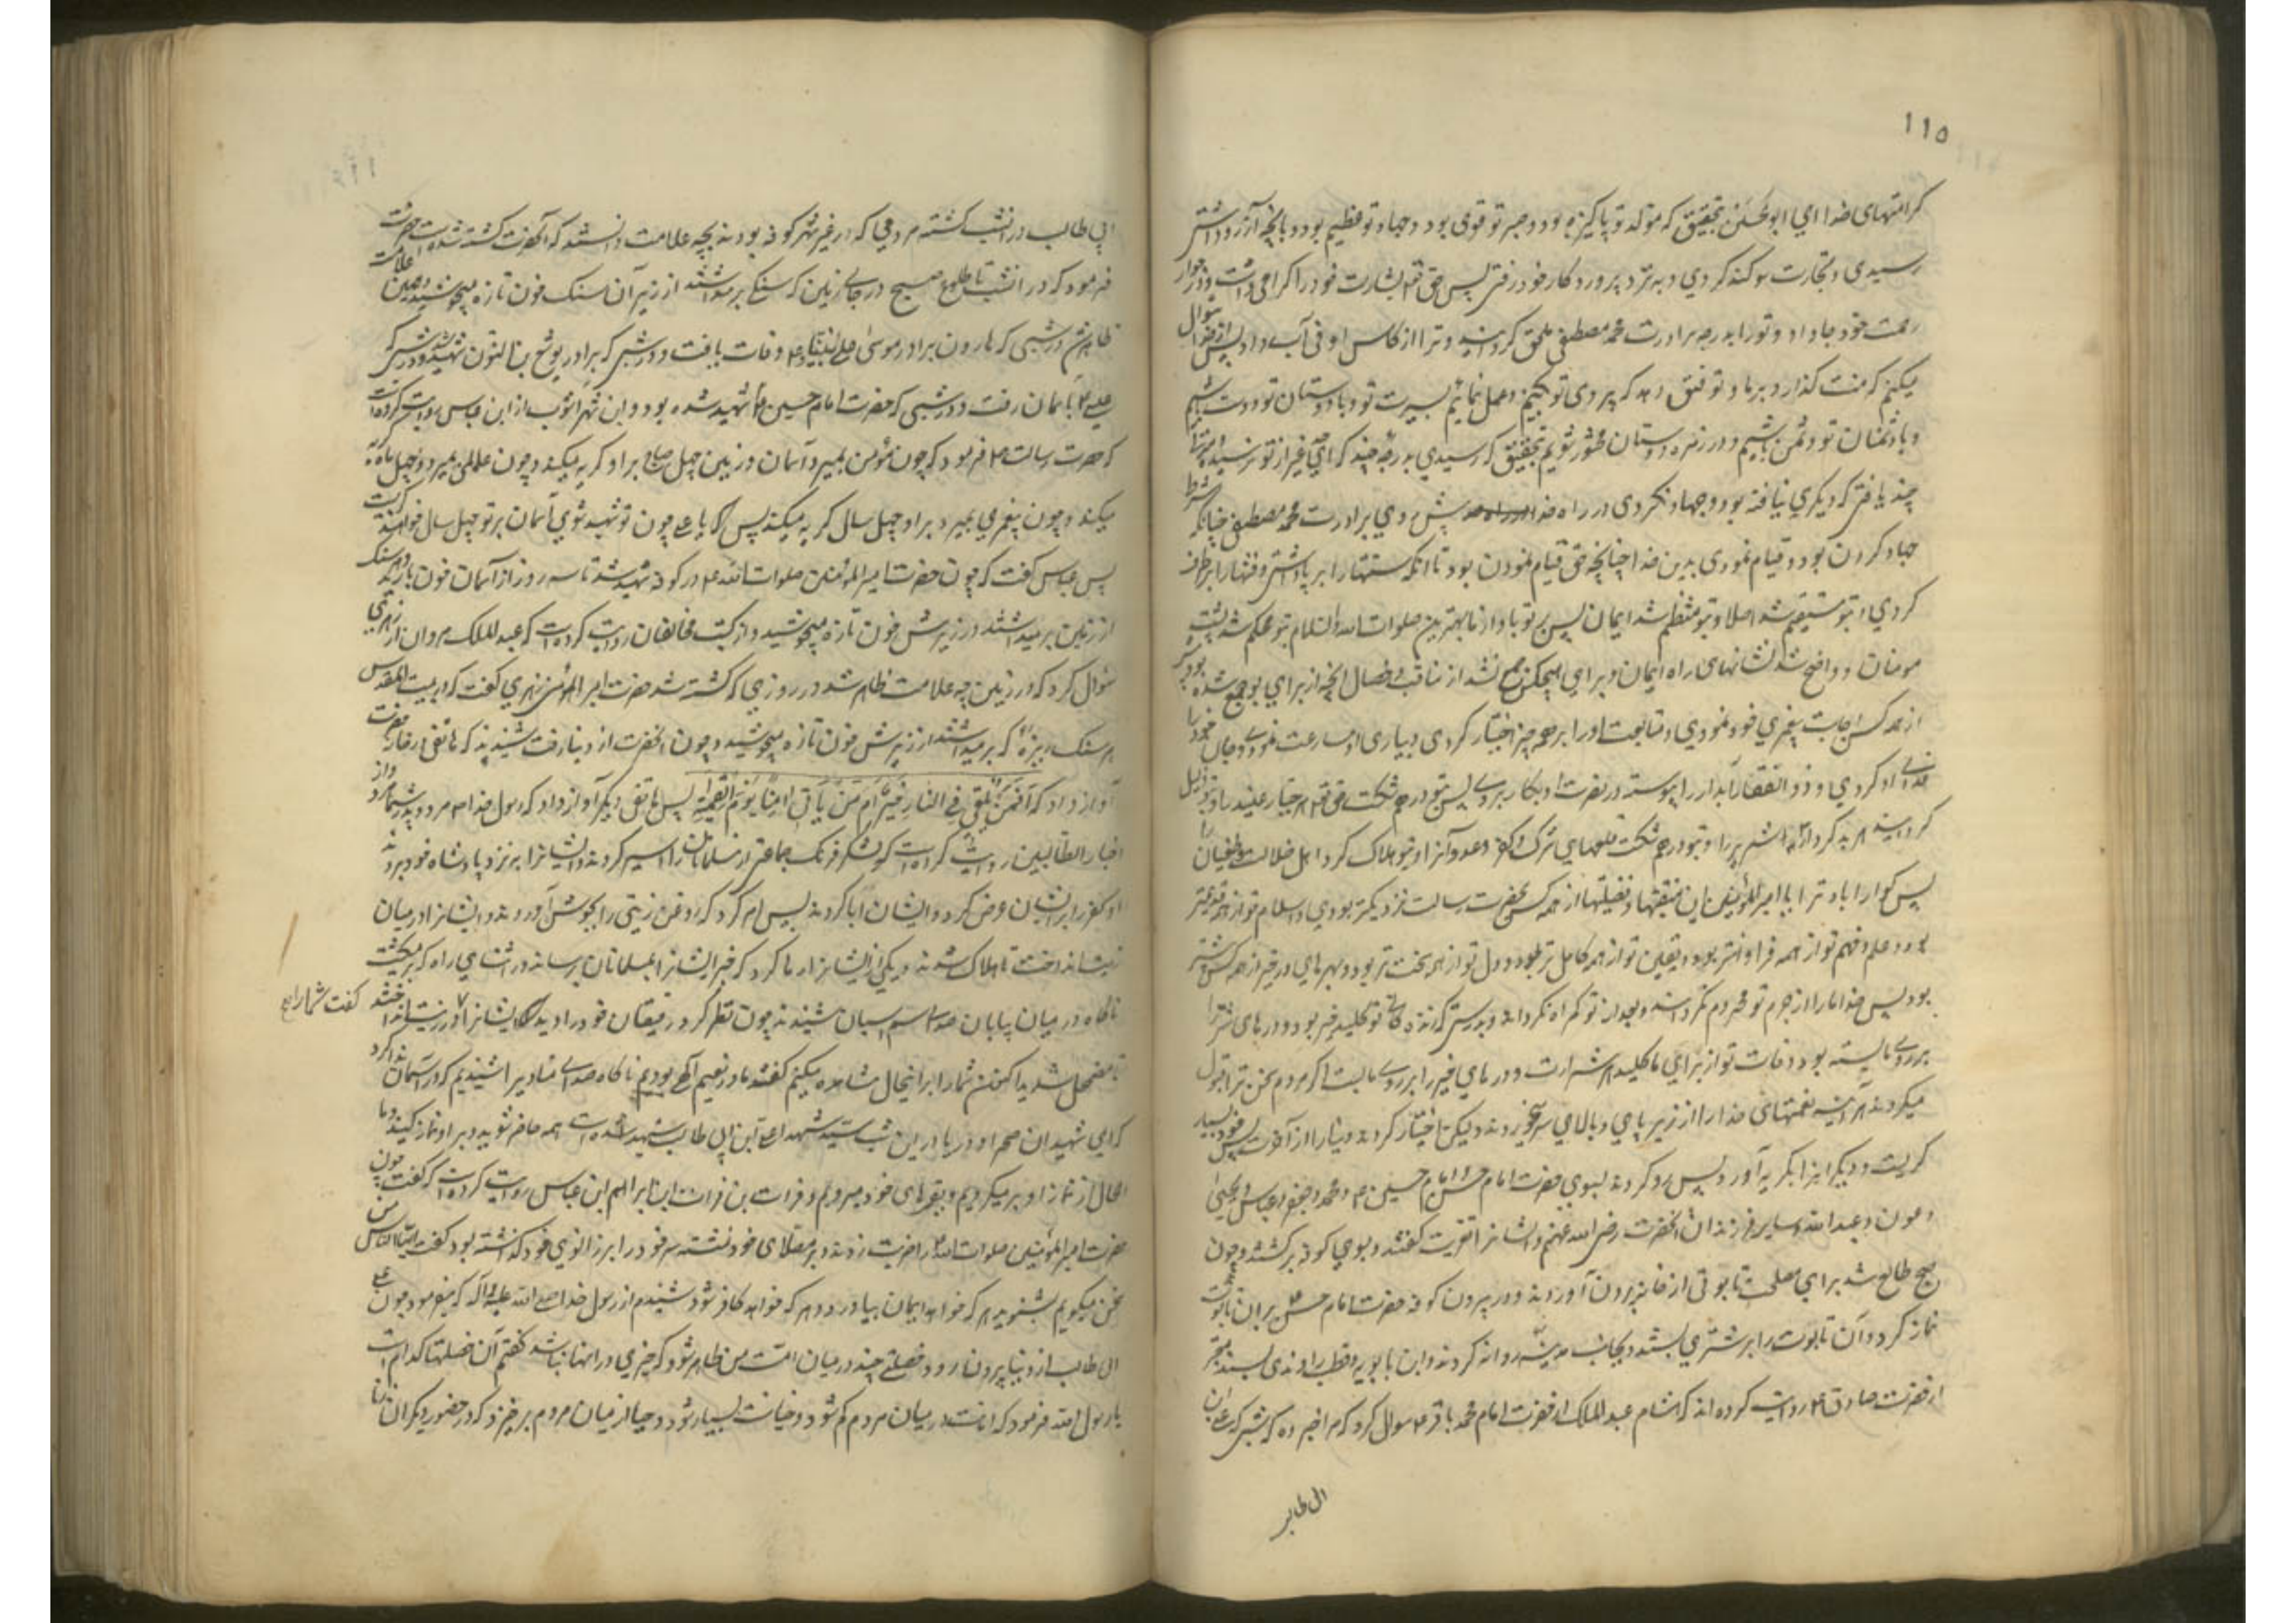 ۱۱۵
کرامتهای خدا ای ابو الحسن بتحقیق که مولد تو پاکیزه بود و صبر تو قوی بود و جهاد تو عظیم بود و بآنچه آرزو داشتی
رسیدی و تجارت سودمند کردی و به نزد پروردکار خود رفتی پس حق تعه بشارت خود را کرامی داشت و در جوار
رحمت خود جا داد و تو را بدرجه برادرت محمد مصطفی ملحق کردانید و ترا از کاس اوفی آب داد پس از خدا سوال
میکنم که منت کذارد بر ما و توفیق دهد که پیروی تو بکنیم و عمل نمائیم بسیرت تو و با دوستان تو دوست باشیم
و با دشمنان تو دشمن باشیم و در زمره دوستان تو محشور شویم بتحقیق که رسیدی بدرجه چند که احدی غیر از تو نرسید و مرتبه
چند یافتی که دیکری نیافته بود و جهاد کردی در راه خدا پیش روی برادرت محمد مصطفی چنانکه شرط
جهاد کردن بود و قیام نمودی بدین خدا چنانچه حق قیام نمودن بود تا آنکه سنتها را برپا داشتی و فتنها را برطرف
کردی و بتو مستقیم شد اسلام و بتو منتظم شد ایمان پس بر تو باد از ما بهترین صلوات الله و السلام بتو محکم شد پشت
مومنان و واضح شد نشانهای راه ایمان و برای هیچکس جمع نشد از مناقب و خصال آنچه از برای تو جمع شده بود پیشتر
از همه کس اجابت پیغمبری خود نمودی و متابعت او را بر همه چیز اختیار کردی و بیاری او مسارعت نمودی و جان خود را
فدای او کردی و ذو الفقار آبدار را پیوسته در نصرت او بکار بردی پس بتو درهم شکست حق تعه هر جبار عنید را و بتو ذلیل
کردانید هر بد کردار اشرار را و بتو درهم شکست قلعهای شرک و کفر و عدوان را و بتو هلاک کرد اهل ضلالت و طغیان را
پس کوارا باد ترا یا امیر المؤمنین این منقبتها و فضیلتها از همه کس بحضرت رسالت نزدیکتر بودی و اسلام تو از همه قدیمتر
بود و علم و فهم تو از همه فراوانتر بود و یقین تو از همه کامل تر بود و دل تو از همه سخت تر بود و بهره ای در خیر از همه کس بیشتر
بود پس خدا ما را از اجر تو محروم نکرداند و بعد از تو کمراه نکرداند و بدرستی که زنده کانی تو کلید خیر بود و درهای شر را
بر روی ما بسته بود و وفات تو از برای ما کلید هر شر است و درهای خیر را بر روی ما بست اکر مردم سخن ترا قبول
میکردند هر آینه نعمتهای خدا را از زیر پای و بالای سر میخوردند و لیکن اختیار کردند دنیا را از آخرت پس خود بسیار
کریست و دیکرانرا بکریه آورد پس رو کردند بسوی حضرت امام حسن و امام حسین ع و محمد و جعفر و عباس و یحیی
و عون و عبد الله و سایر فرزندان آنحضرت رضی الله عنهم و ایشانرا تعزیت کفتند و بسوی کوفه برکشتند و چون
صبح طالع شد برای مصلحت تابوتی از خانه بیرون آوردند و در بیرون کوفه حضرت امام حسن ع بر آن تابوت
نماز کرد و آن تابوت را بر شتری بستند و بجانب مدینه روانه کردند و ابن بابویه و قطب راوندی بسند معتبر
از حضرت صادق ع روایت کرده اند که هشام عبد الملک از حضرت امام محمد باقر ع سوال کرد که مرا خبر ده که شبی که علی ابن
ابی طالب
ابی طالب در آنشب کشته مردمی که در غیر شهر کوفه بودند بچه علامت دانستند که آنحضرت کشته شده است حضرت
فرمود که در آنشب تا طلوع صبح در جای زمین که سنکی برمیداشتند از زیر آن سنک خون تازه میجوشید و همین علامت
ظاهر شد در شبی که هارون برادر موسی علی نبینا و ع وفات یافت و در شبی که یوشع بن نون شهید شد و در شبی که
عیسی ع باسمان رفت و در شبی که حضرت امام حسین ع شهید شده بود و ابن شهر آشوب از ابن عباس روایت کرده است
که حضرت رسالت ص فرمود که چون مؤمن بمیرد آسمان و زمین چهل صباح بر او کریه میکند و چون عالمی بمیرد چهل ماه کریه
میکند و چون پیغمبری بمیرد بر او چهل سال کریه میکند پس یا علی چون تو شهید شوی آسمان بر تو چهل سال خواهند کریست
پس عباس کفت که چون حضرت امیر المؤمنین صلوات الله ع در کوفه شهید شد تا سه روز از آسمان خون بارید و هر سنک که
از زمین برمیداشتند در زیرش خون تازه میجوشید و از کتب مخالفان روایت کرده است که عبد الملک مروان از زهری
سوال کرد که در زمین چه علامت ظاهر شد در روزی که کشته شد حضرت امیر المؤمنین زهری کفت که در بیت المقدس
هر سنک ریزه که برمیداشتند از زیرش خون تازه میجوشید و چون آنحضرت از دنیا رفت شنیدند که هاتفی از خانه حضرت
آواز داد که افمن یلقی فی النار خیر ام من یأتی آمنا یوم القیمة پس هاتفی دیکر آواز داد که رسول خدا ص مرد و پدر شما مرد و از
اخبار الطالبین روایت کرده است که لشکر فرنک جماعتی از مسلمانان را اسیر کردند و ایشانرا به نزد پادشاه خود بردند
او کفر را بر ایشان عرض کرد و ایشان ابا کردند پس امر کرد که روغن زیتی را بجوش آوردند و ایشانرا در میان
زیت انداخت تا هلاک شدند و یکی از ایشانرا رها کرد که خبر ایشانرا بمسلمانان برساند در اثنای راه که برمیکشت
ناکاه در میان بیابان صدای سم اسبان شنید چون نظر کرد رفیقان خود را دید که ایشانرا در زیت انداختند کفت شما را
مضمحل شدید اکنون شما را بر اینحال مشاهده میکنم کفتند ما در نعیم الهی بودیم ناکاه صدای منادیرا شنیدیم که در آسمان ندا کرد
که ای شهیدان صحرا و دریا در این شب سید شهدا علی ابن ابی طالب شهید شده است همه حاضر شوید و بر او نماز کنید و ما
الحال از نماز او برمیکردیم و بقبرهای خود میرویم و فرات بن فرات ابن ابراهیم ابن عباس روایت کرده است که کفت چون
حضرت امیر المؤمنین صلوات الله ع را ضربت زدند و بر مصلای خود نشسته سر خود را بر زانوی خود کذاشته بود کفت ایها الناس من
سخن میکویم بشنوید هر که خواهد ایمان بیاورد و هر که خواهد کافر شود شنیدم از رسول خدا صلی الله علیه و آله که میفرمود چون علی
ابی طالب از دنیا بیرون رود خصلتی چند در میان امت من ظاهر شود که خیری در آنها نباشد کفتم آن خصلتها کدام است
یا رسول الله فرمود که امانت در میان مردم کم شود و خیانت بسیار شود و حیا از میان مردم برخیزد که در حضور دیکران زنا